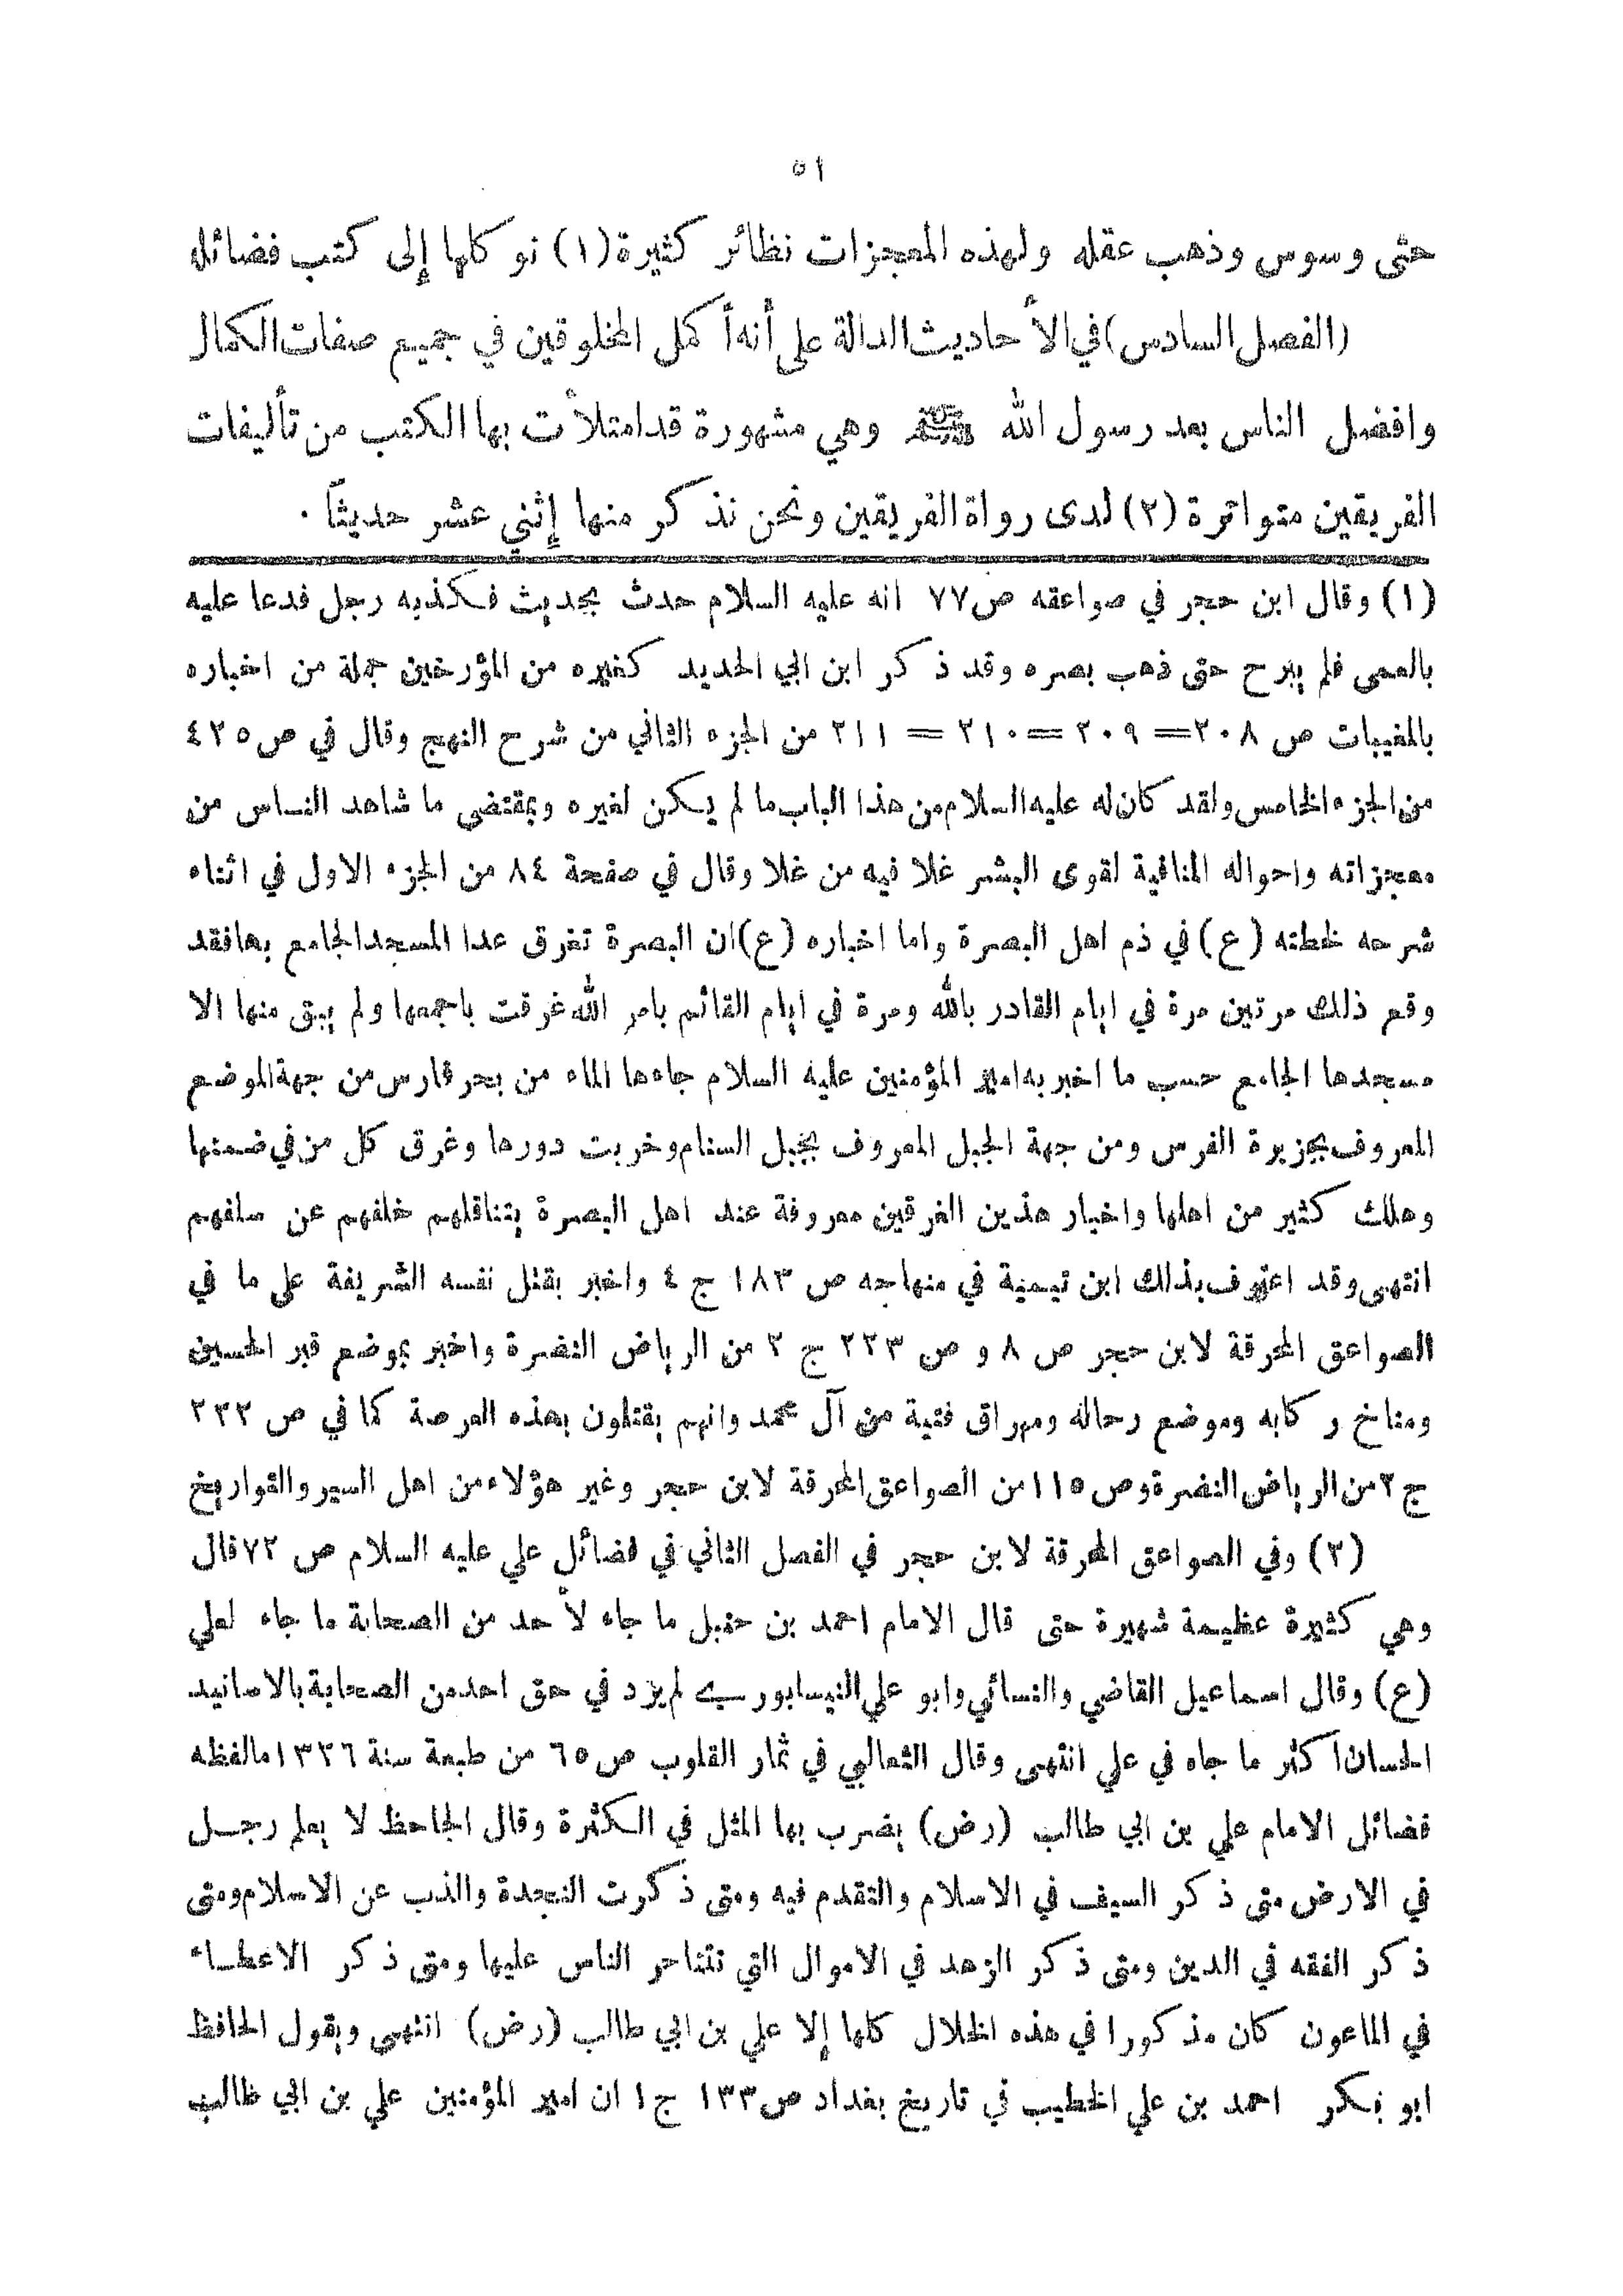 ٥١
حتى وسوس وذهب عقله ولهذه المعجزات نظائر كثيرة (١) نوكلها إلى كتب فضائله
(الفصل السادس) في الأحاديث الدالة على أنه أكمل المخلوقين في جميع صفات الكمال
وافضل الناس بعد رسول الله ﷺ وهي مشهورة قد امتلأت بها الكتب من تأليفات
الفريقين متواترة (٢) لدى رواة الفريقين ونحن نذكر منها إثني عشر حديثاً .
(١) وقال ابن حجر في صواعقه ص ٧٧ انه عليه السلام حدث بحديث فكذبه رجل فدعا عليه
بالعمى فلم يبرح حتى ذهب بصره وقد ذكر ابن ابي الحديد كغيره من المؤرخين جملة من اخباره
بالمغيبات ص ٢٠٨ = ٢٠٩ = ٢١٠ = ٢١١ من الجزء الثاني من شرح النهج وقال في ص ٤٢٥
من الجزء الخامس ولقد كان له عليه السلام من هذا الباب ما لم يكن لغيره وبمقتضى ما شاهد الناس من
معجزاته واحواله المنافية لقوى البشر غلا فيه من غلا وقال في صفحة ٨٤ من الجزء الاول في اثناء
شرحه لخطبته (ع) في ذم اهل البصرة واما اخباره (ع) ان البصرة تغرق عدا المسجد الجامع بها فقد
وقع ذلك مرتين مرة في ايام القادر بالله ومرة في ايام القائم بامر الله غرقت باجمعها ولم يبق منها الا
مسجدها الجامع حسب ما اخبر به امير المؤمنين عليه السلام جاءها الماء من بحر فارس من جهة الموضع
المعروف بجزيرة الفرس ومن جهة الجبل المعروف بجبل السنام وخربت دورها وغرق كل من في ضمنها
وهلك كثير من اهلها واخبار هذين الغرقين معروفة عند اهل البصرة يتناقلهم خلفهم عن سلفهم
انتهى وقد اعترف بذلك ابن تيمية في منهاجه ص ١٨٣ ج ٤ واخبر بقتل نفسه الشريفة على ما في
الصواعق المحرقة لابن حجر ص ٨ و ص ٢٢٣ ج ٢ من الرياض النضرة واخبر بموضع قبر الحسين
ومناخ ركابه وموضع رحاله ومهراق فتية من آل محمد وانهم يقتلون بهذه العرصة كما في ص ٢٢٢
ج ٢ من الرياض النضرة وص ١١٥ من الصواعق المحرقة لابن حجر وغير هؤلاء من اهل السير والتواريخ
(٢) وفي الصواعق المحرقة لابن حجر في الفصل الثاني في فضائل علي عليه السلام ص ٧٢ قال
وهي كثيرة عظيمة شهيرة حتى قال الامام احمد بن حنبل ما جاء لأحد من الصحابة ما جاء لعلي
(ع) وقال اسماعيل القاضي والنسائي وابو علي النيسابوري لم يزد في حق احد من الصحابة بالاسانيد
الحسان اكثر ما جاء في علي انتهى وقال الثعالبي في ثمار القلوب ص ٦٥ من طبعة سنة ١٣٢٦ ما لفظه
فضائل الامام علي بن ابي طالب (رض) يضرب بها المثل في الكثرة وقال الجاحظ لا يعلم رجل
في الارض متى ذكر السيف في الاسلام والتقدم فيه ومتى ذكرت النجدة والذب عن الاسلام ومتى
ذكر الفقه في الدين ومتى ذكر الزهد في الاموال التي تتناحر الناس عليها ومتى ذكر الاعطاء
في الماعون كان مذكورا في هذه الخلال كلها إلا علي بن ابي طالب (رض) انتهى ويقول الحافظ
ابو بكر احمد بن علي الخطيب في تاريخ بغداد ص ١٣٣ ج ١ ان امير المؤمنين علي بن ابي طالب